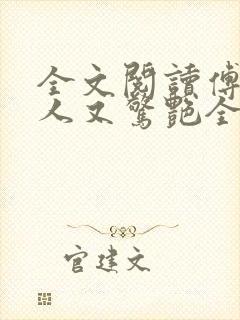 全文閱讀傅
人又驚艷全
官建文